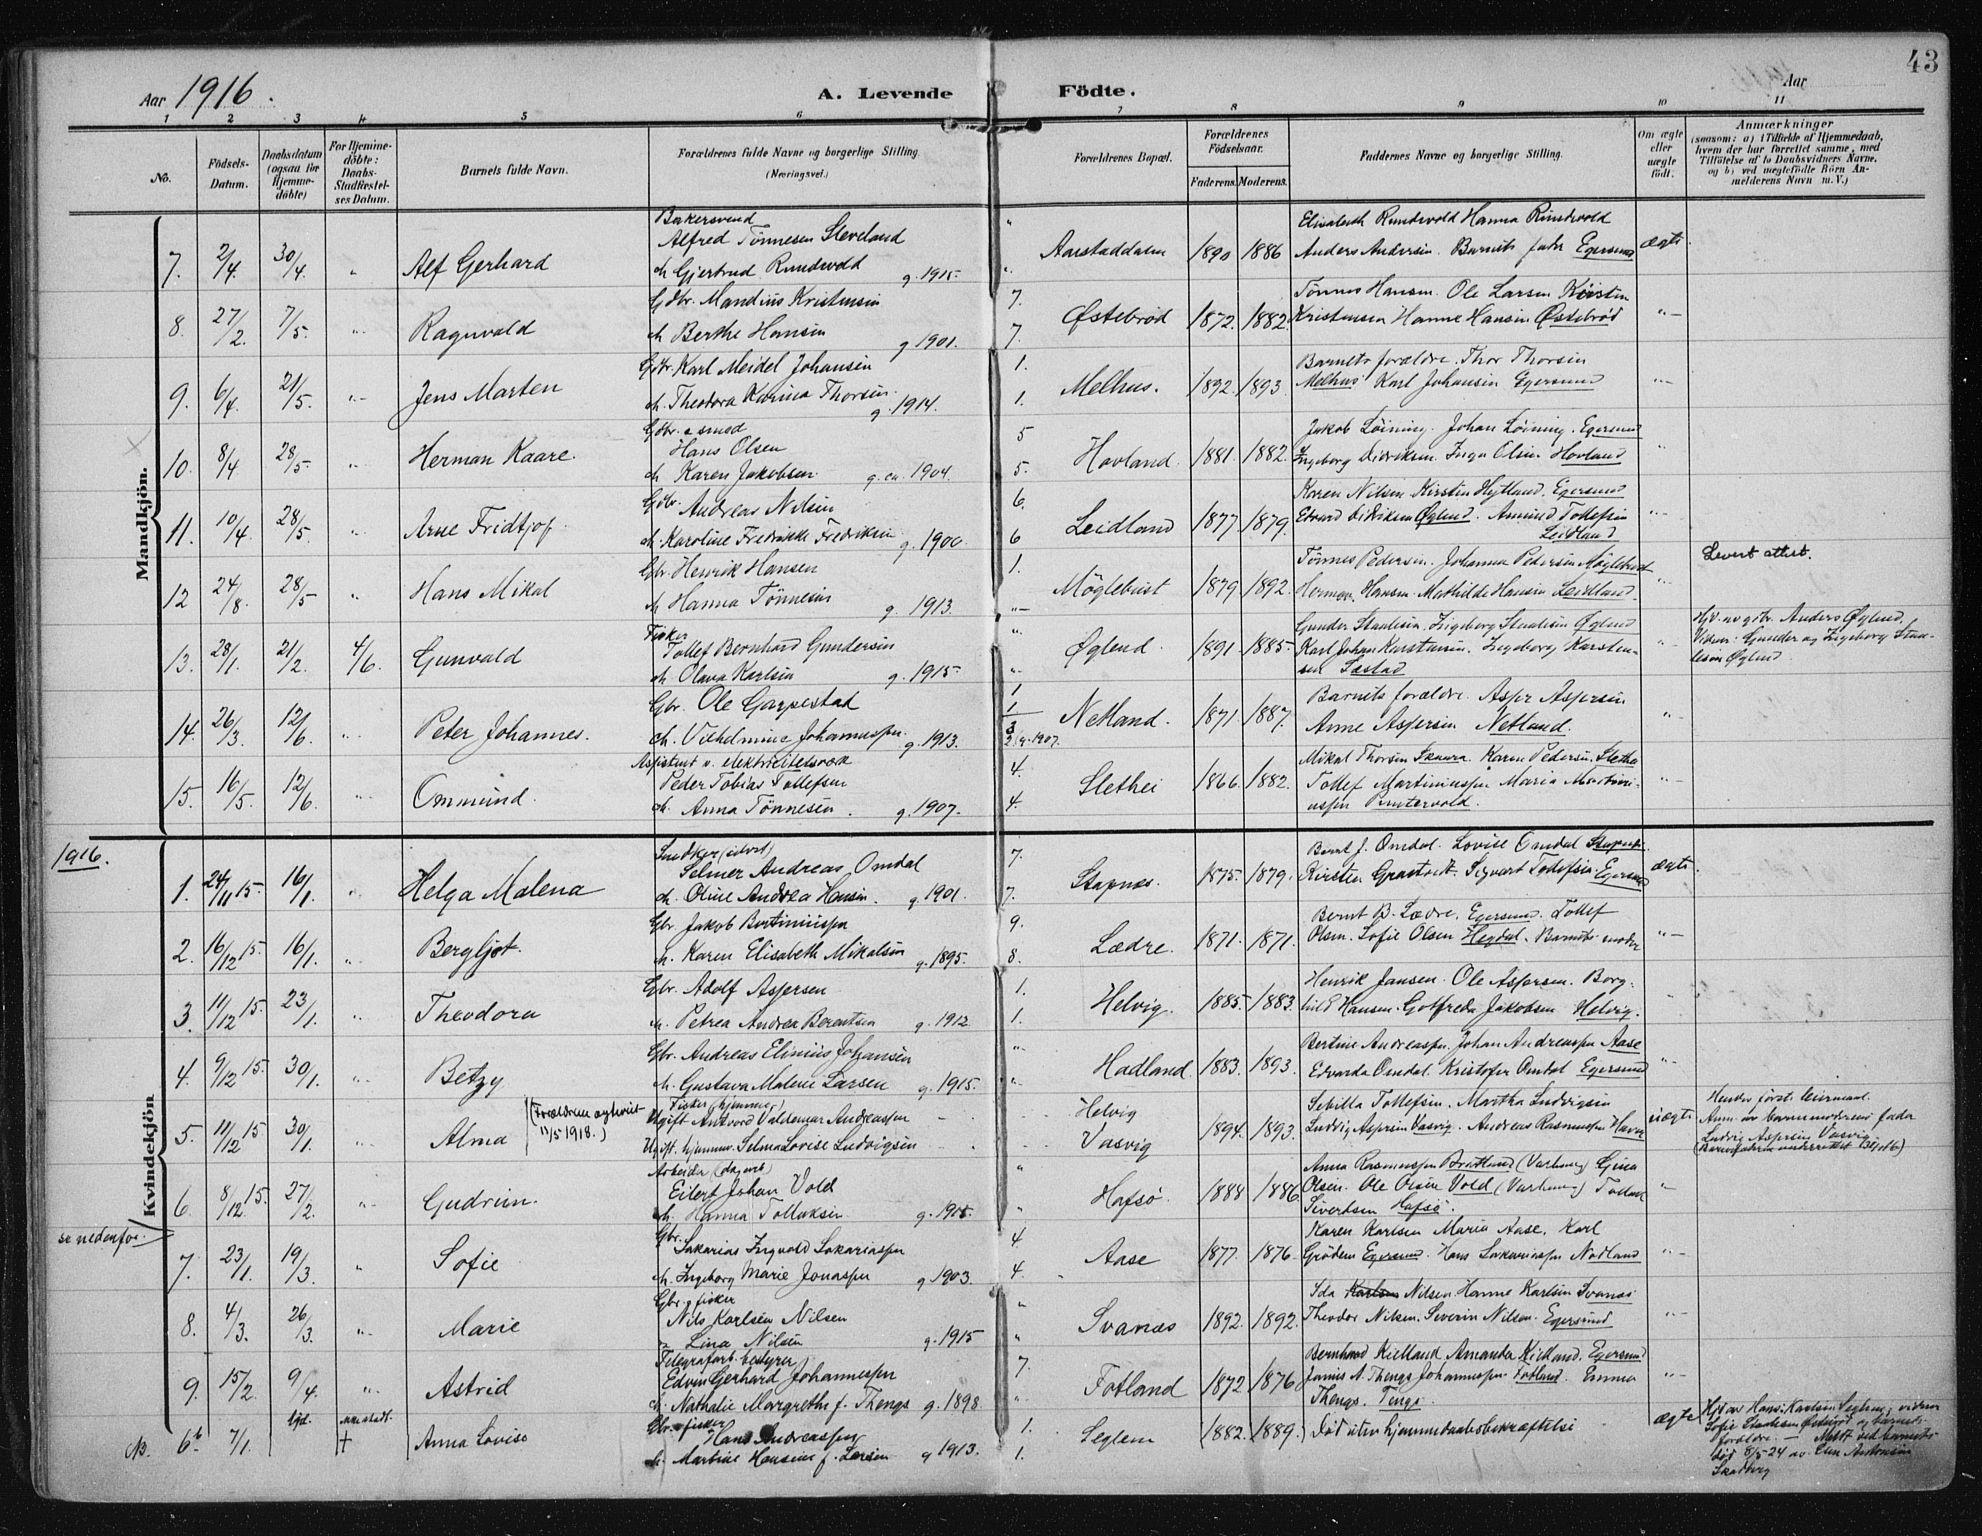 43
Aar 1916.
A. Levende Födte.
Aar
1 2 3 4 5 6 7 8 9 10 11
No.
Födsels-Datum.
Daabsdatum (ogsaa for Hjemme-döbte)
For Hjemme-döbte: Daabs-Stadfæstel-ses Datum.
Barnets fulde Navn.
Forældrenes fulde Navne og borgerlige Stilling. (Næringsvei.)
Forældrenes Bopæl.
Forældrenes Födselsaar.
Faderens. Moderens.
Faddernes Navne og borgerlige Stilling.
Om ægte eller uægte födt.
Anmærkninger
(saasom: a) i Tilfælde af Hjemmedaab, hvem der har forrettet samme, med Tilföielse af to Daabsvidners Navne, og b) ved uægtefödte Börn An-melderens Navn m. V.)
Mandkjön.
Bakersvend
Elisabeth Rundvold Hanna Rundvold
7. 2/4. 30/4. " Alf Gerhard Alfred Tönnesen Sleveland
Gjertrud Rundvold g. 1915. Aarstaddalen 1890 1886 Anders Andersen. Barnets fader Egersund ægte
8. 27/2. 7/5. " Ragnvald Gbr. Mandius Kristensen
Berthe Hansen g. 1901. 7. 7. Østebröd 1872. 1882. Tönnes Hansen. Ole Larsen Kirsten
Kristensen Hanne Hansen Østebröd "
9. 6/4. 21/5. " Jens Marten Gbr. Karl Meidel Johansen
Theodora Karina Thorsen. g. 1914. 1. 1. Melhus. 1892. 1893 Barnets forældre. Thor Thorsen
Melhus Karl Johansen Egersund "
10. 8/4 28/5. " Herman Kaare. Gbr. & smed
Hans Olsen
Karen Jakobsen g. ca. 1904. 5 5. Hovland. 1881. 1882. Jakob Löining. Johan Löining. Egersund
Ingeborg Didriksen. Inga Olsen Hovland "
11. 10/4. 28/5. " Arne Fridtjof. Gbr. Andreas Nilsen
Karoline Fredrikke Fredriksen g. 1900. 6. 6 Leidland 1877. 1879. Karen Nilsen Kirsten Hytland. Egersund
Edvard Didriksen Øglend. Amund Tollefsen
Leidland "
12 24/8. 28/5 " Hans Mikal Gbr. Henrik Hansen
Hanna Tönnesen g. 1913. 1. Möglebust 1879. 1892. Tönnes Pedersen. Johanna Pedersen Möglebust
Herman Hansen. Mathilde Hansen Leidland " Levert attest.
13. 28/1. 21/2. 4/6. Gunvald Fisker
Tollef Bernhard Gundersen
Olava Karlsen g. 1915. Øglend. 1891. 1885. Gunder Staalesen. Ingeborg Staalesen Øglend
Karl Johan Karstensen. Ingeborg Karsten-
sen Sæstad " Hjd. av gbr. Anders Øglend.
Vidner: Gunder og Ingeborg Staa-
lesen Øglend
14. 26/3. 12/6. " Peter Johannes. Gbr. Ole Garpestad
Vilhelmine Johannessen. g. 1913. 1 1/3 2/g. 1907. Netland. 1871. 1887. Barnets forældre. Asper Aspersen
Anne Aspersen Netland. "
15. 16/5. 12/6. " Ommund. Assistent v. elektricitetsverk
Peder Tobias Tollefsen
Anna Tönnesen. g. 1907. 4. 4. Slethei 1866. 1882. Mikal Thorsen Skaara. Karen Pedersen. Slethei
Tollef Martiniussen Maria Martini-
ussen Puntervold. "
1916.
Kvindekjön
1. 24/11 15. 16/1. " Helga Malena Snedker
Selmer Andreas Omdal
Oline Andrea Hansen. g. 1901. 7. 7. Stapnes. 1875. 1879. Bernt J. Omdal. Lovise Omdal Stapnes
Kirsten Grastveit. Sigvart Tollefsen. Egersund ægte.
2. 16/12 15. 16/1. " Bergljot. Gbr. Jakob Bertiniussen
Karen Elisabeth Mikalsen g. 1895. 9. 8. Lædre. 1871. 1871. Bernt B. Lædre. Egersund. Tollef
Olsen. Sofie Olsen Hegdal. Barnets moder "
3. 11/12 15. 23/1. " Theodora Gbr. Adolf Aspersen
Petrea Andrea Berentsen g. 1912 1. 1. Helvig. 1885. 1883. Henrik Jansen. Ole Aspersen. Borg-
hild Hansen. Gotfreda Jakobsen Helvig. "
4. 9/12 15. 30/1. " Betzy Gbr. Andreas Elinius Johansen
Gustava Malene Larsen g. 1915. Hadland. 1883. 1893. Bertine Andreassen. Johan Andreassen Aase
Edvarda Omdal. Kristofer Omdal Egersund "
5. 11/12 15 30/1. " Alma (Forældrene egteviet 11/5 1918.) Fisker (hjemme)
Ugift Antvord Valdemar Andreassen
Ugift. hjemmev. Selma Lovise Ludvigsen Helvig
Vasvig 1894. 1893. Sebilla Tollefsen. Martha Ludvigsen
Ludvig Aspersen Vasvig. Andreas Rasmussen Havn uægte Hendes först. leiermaal.
Anm. av barnemoderens fader
Ludvig Aspersen Vasvig.
6. 8/12 15. 27/2. " Gudrun. Arbeider
Eilert Johan Vold
Hanna Tollaksen g. 1915. Hafsö. 1888 1886 Anna Rasmussen Bratland (Varhaug) Gina
Olsen. Ole Olsen Vold (Varhaug) Tollak
Sivertsen Hafsö. "
se nedenfor
7. 23/1. 19/3. " Sofie Gbr. Sakarias Ingvald Sakariassen
Ingeborg Marie Jonassen g. 1903. 4 4. Aase 1877. 1876. Karen Karlsen Maria Aase. Karl
Grödem Egersund. Hans Sakariassen Nodland "
8. 4/3. 26/3. " Marie Gbr. & fisker
Nils Karlsen Nilsen
Lina Nilsen g. 1915 Svanæs 1892. 1892. Ida Karlsen Nilsen Hanne Karlsen Svanæs
Theodor Nilsen. Severin Nilsen. Egersund "
9. 15/2. 9/4. " Astrid Telegrafarb. bestyrer
Edvin Gerhard Johannessen
Nathalie Margrethe f. Thengs g. 1898. 7. Fotland 1872 1876 Bernhard Kielland Amanda Kielland. Egersund
Janius A. Thengs Johannessen Fotland. Emma
Thengs. Tengs. "
6b 7/1. hjd. ikke stadf. † Anna Lovise Gbr. fisker
Hans Andreassen
Martine Hansine f. Larsen g 1913. 1. 1. Seglem (1882. 1889.) Död uten hjemmedaabsbekræftelse ægte Hjd av Hans Karlsen Seglem; vidner
Sofie Staalesen Østebröd og barnets
forældre. — Meldt ved barnets
död 8/5-24 av
Skadberg